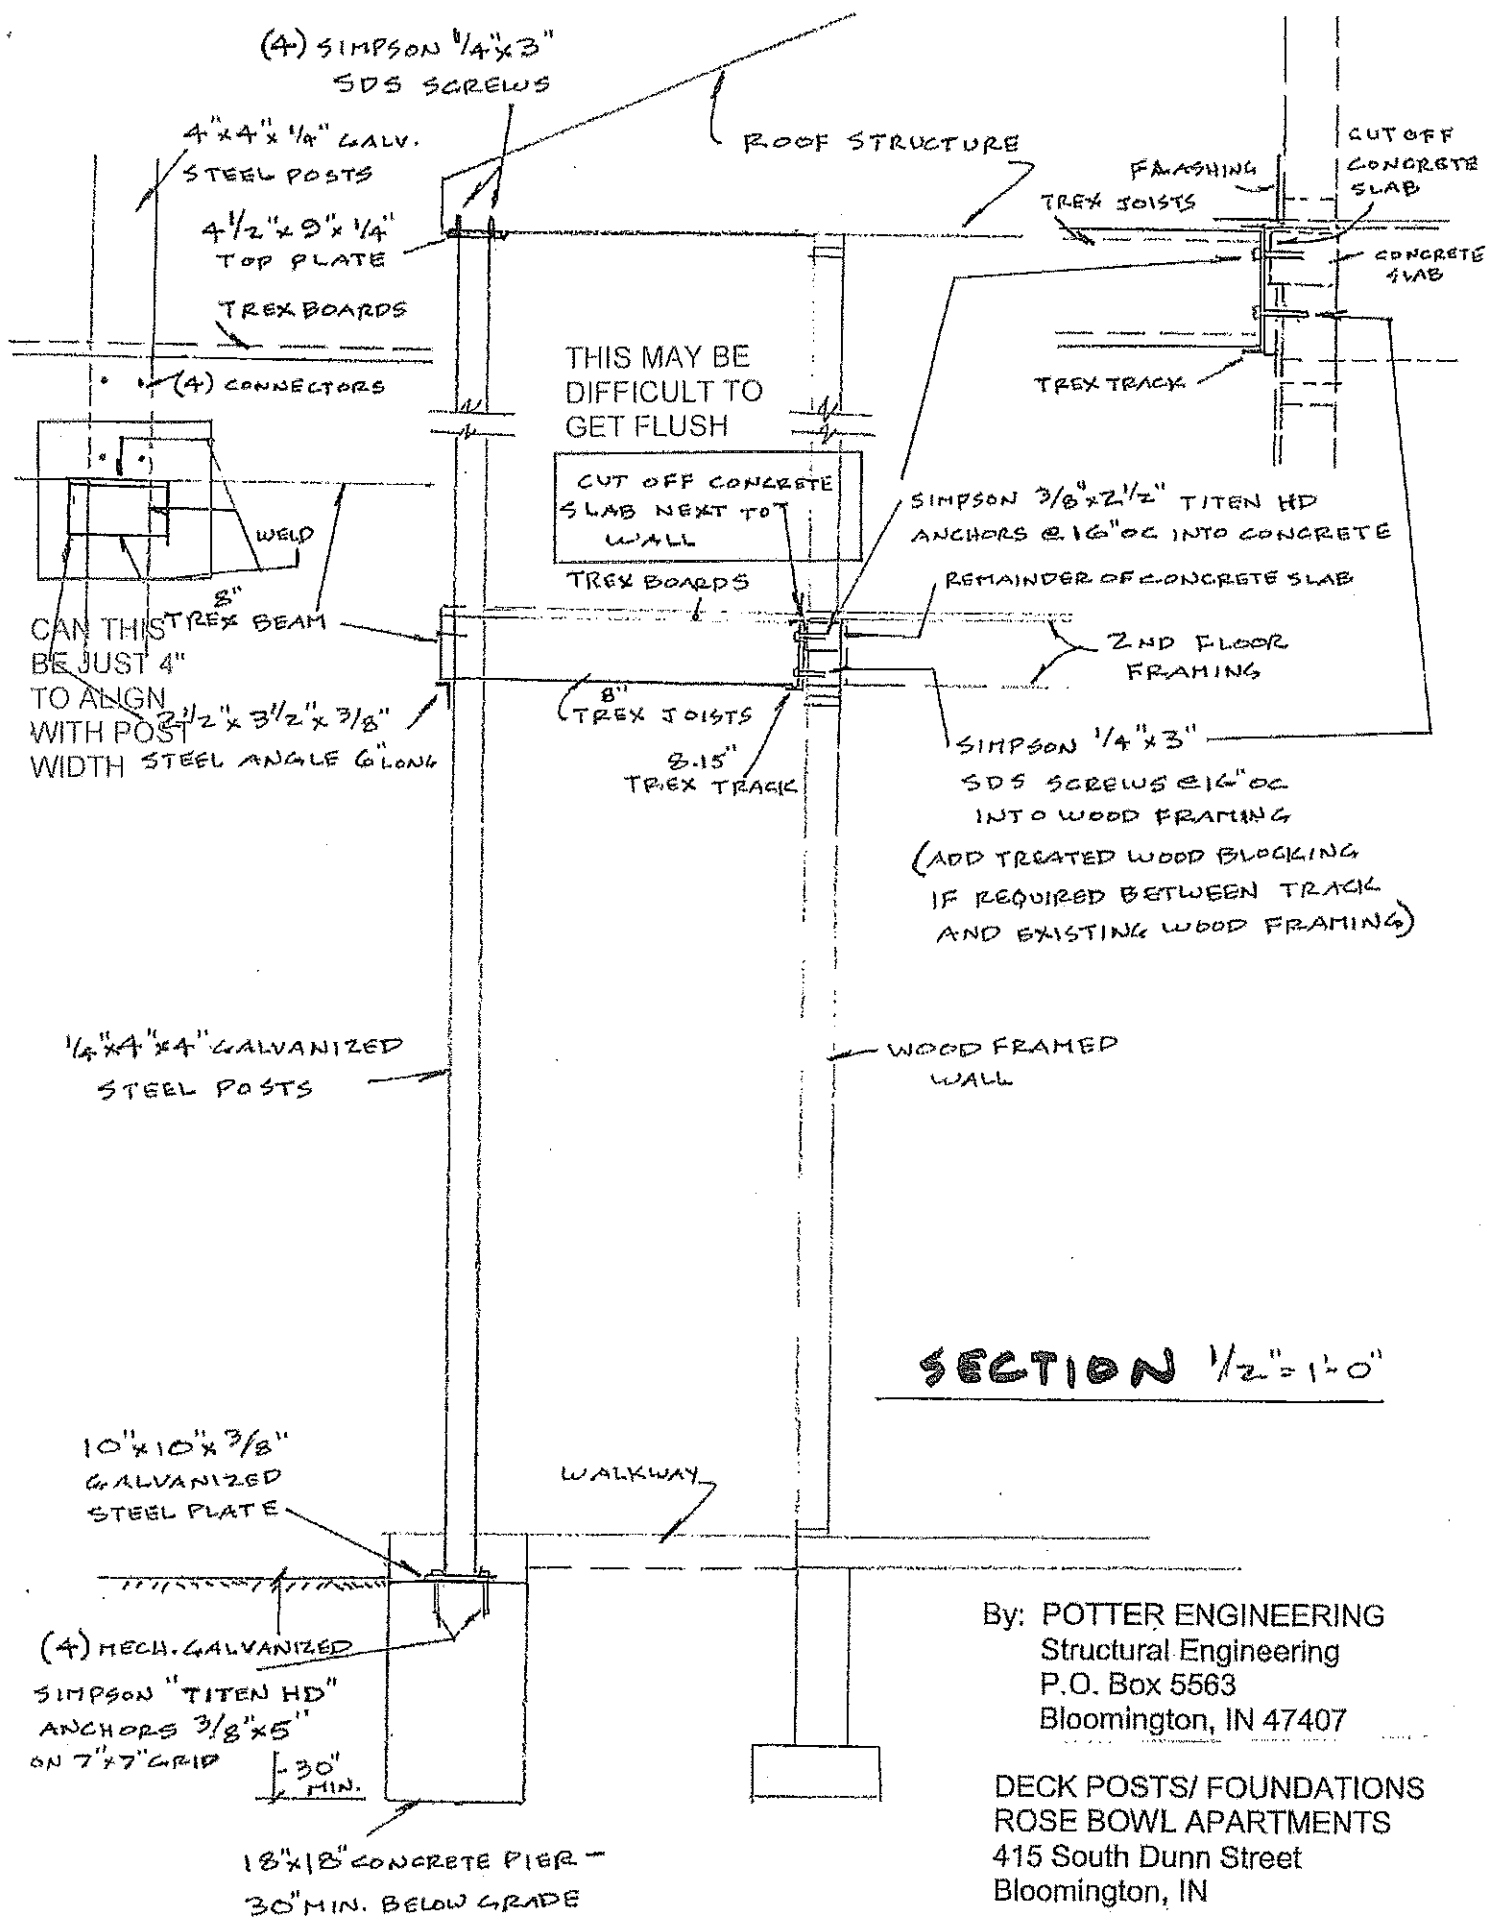 (4) SIMPSON 1/4"x3"
SDS SCREWS
4"x4"x1/4" GALV.
STEEL POSTS
4 1/2"x9"x1/4"
TOP PLATE
TREX BOARDS
(4) CONNECTORS
WELD
8"
TREX BEAM
CAN THIS
BE JUST 4"
TO ALIGN
WITH POST
WIDTH
2 1/2"x3 1/2"x3/8"
STEEL ANGLE 6" LONG
ROOF STRUCTURE
THIS MAY BE
DIFFICULT TO
GET FLUSH
CUT OFF CONCRETE
SLAB NEXT TO
WALL
TREX BOARDS
8"
TREX JOISTS
8.15"
TREX TRACK
FLASHING
TREX JOISTS
CUT OFF
CONCRETE
SLAB
CONCRETE
SLAB
TREX TRACK
SIMPSON 3/8"x2 1/2" TITEN HD
ANCHORS @ 16" OC INTO CONCRETE
REMAINDER OF CONCRETE SLAB
2ND FLOOR
FRAMING
SIMPSON 1/4"x3"
SDS SCREWS @16" OC
INTO WOOD FRAMING
(ADD TREATED WOOD BLOCKING
IF REQUIRED BETWEEN TRACK
AND EXISTING WOOD FRAMING)
1/4"x4"x4" GALVANIZED
STEEL POSTS
WOOD FRAMED
WALL
SECTION 1/2"=1'-0"
10"x10"x3/8"
GALVANIZED
STEEL PLATE
WALKWAY
(4) MECH. GALVANIZED
SIMPSON "TITEN HD"
ANCHORS 3/8"x5"
ON 7"x7" GRID
30"
MIN.
18"x18" CONCRETE PIER -
30" MIN. BELOW GRADE
By: POTTER ENGINEERING
Structural Engineering
P.O. Box 5563
Bloomington, IN 47407
DECK POSTS/ FOUNDATIONS
ROSE BOWL APARTMENTS
415 South Dunn Street
Bloomington, IN